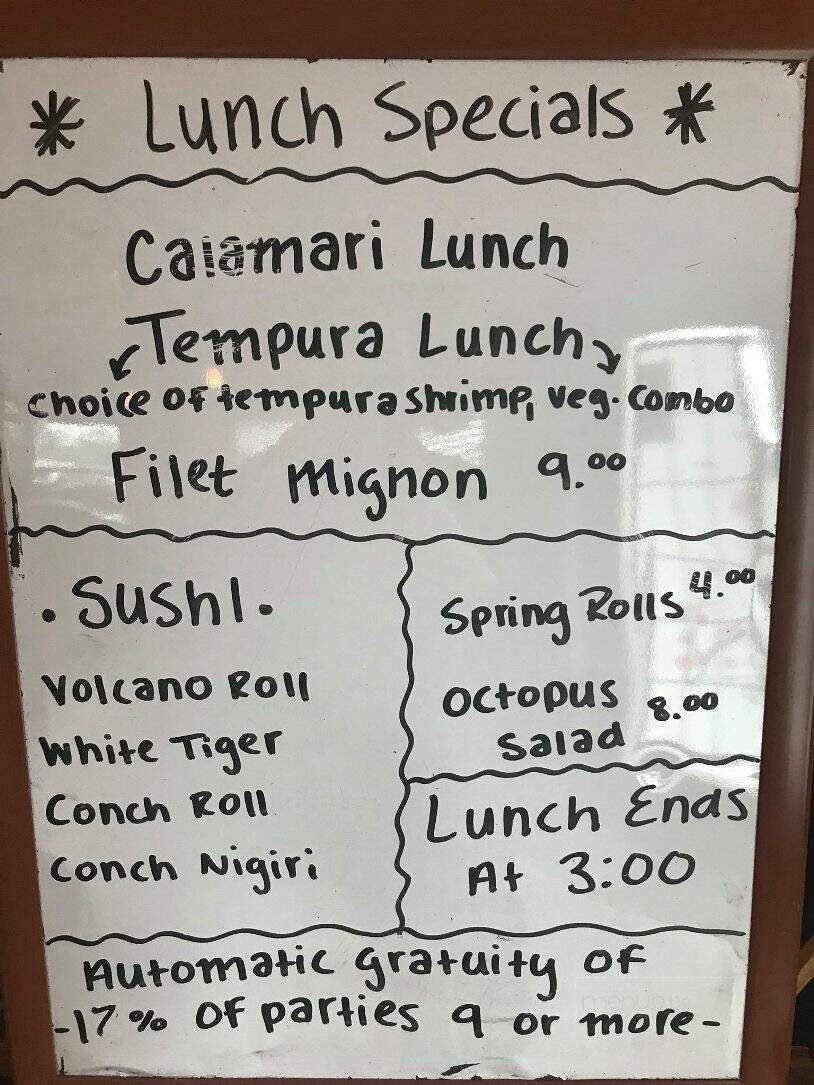 * Lunch Specials *
Calamari Lunch
Tempura Lunch
choice of tempura shrimp, veg. combo
Filet Mignon 9.00
. Sushi .
Volcano Roll
White Tiger
Conch Roll
Conch Nigiri
Spring Rolls 4.00
Octopus 8.00
Salad
Lunch Ends
At 3:00
Automatic gratuity of
-17% of parties 9 or more-
menupix